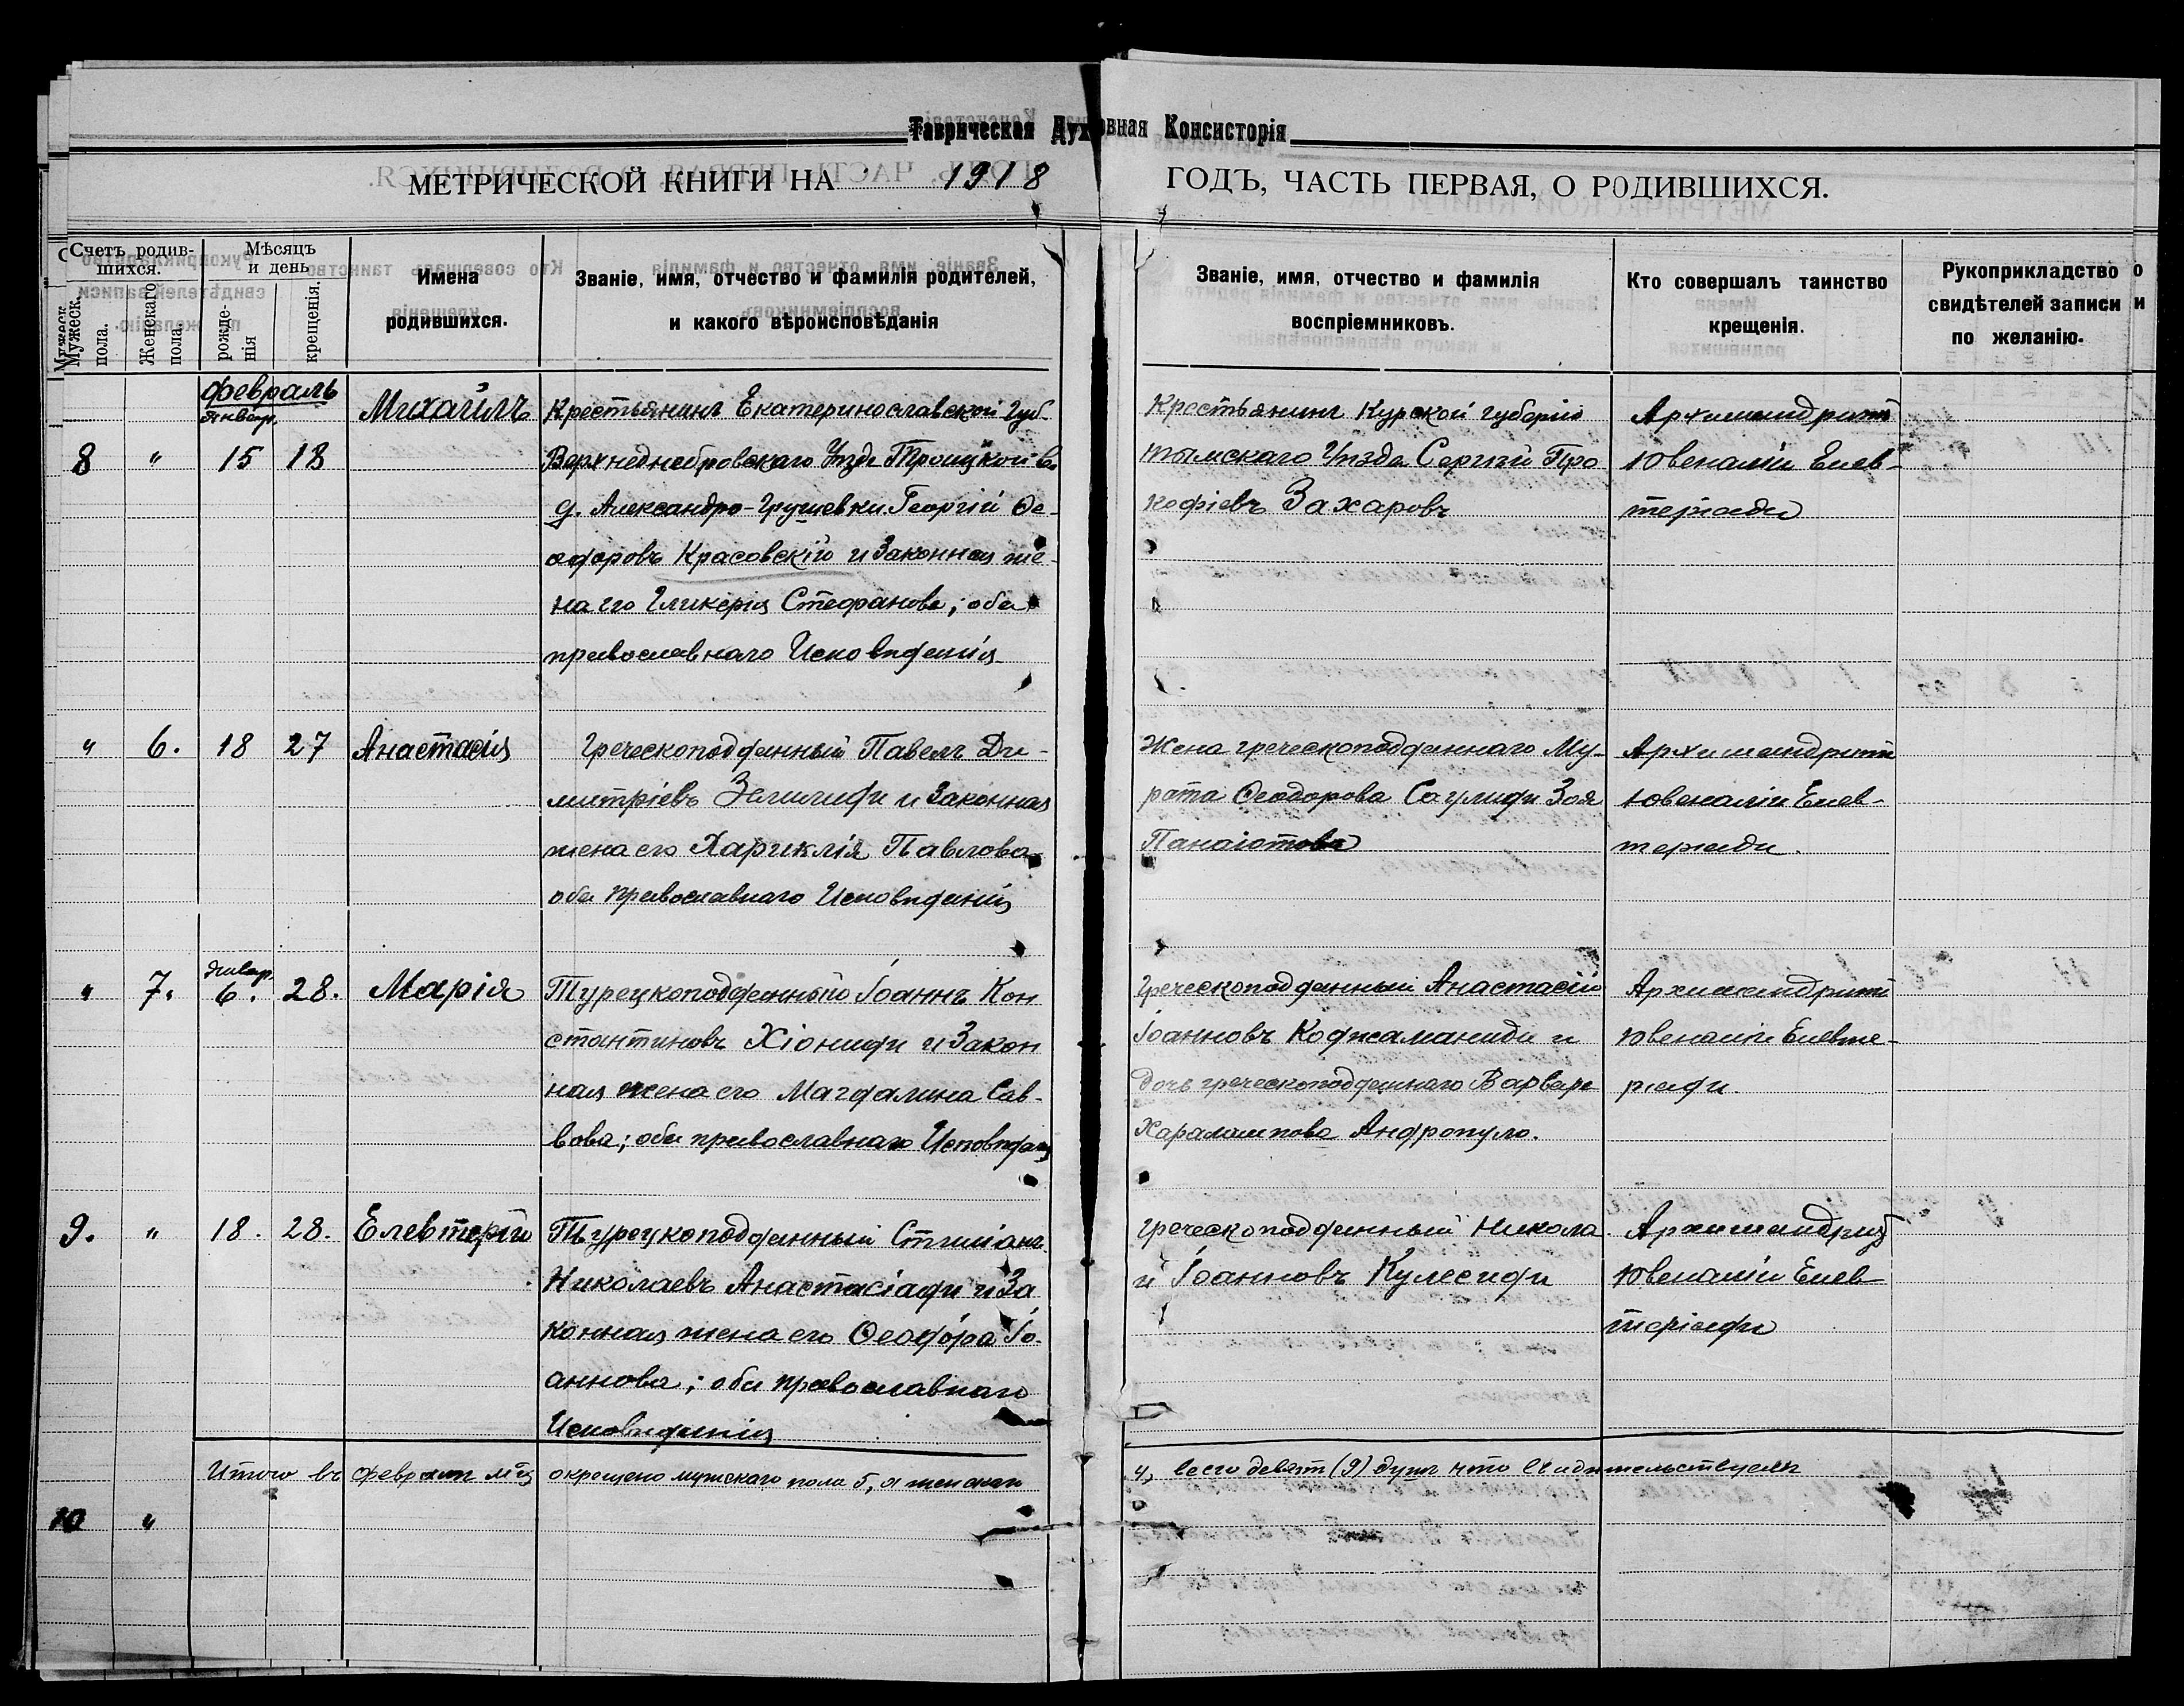 Таврическая Духовная Консисторія
МЕТРИЧЕСКОЙ КНИГИ НА 1918 ГОДЪ, ЧАСТЬ ПЕРВАЯ, О РОДИВШИХСЯ.
Счетъ родившихся.
Мужеск. пола.
Женскаго пола.
Мѣсяцъ и день
рожденія
крещенія.
Имена родившихся.
Званіе, имя, отчество и фамилія родителей,
и какого вѣроисповѣданія
Званіе, имя, отчество и фамилія
воспріемниковъ.
Кто совершалъ таинство
крещенія.
Рукоприкладство
свидѣтелей записи
по желанію.
февраль
январ.
8 " 15 18 Михаилъ
Крестьянинъ Екатеринославской Губ.
Верхнеднебровскаго Уѣзда Троицкой в.
д. Александро-Грушевки Георгій Ѳе-
одоровъ Красовскій и Законная же-
на его Гликерія Стефанова; оба
православнаго Исповѣденія
Крестьянинъ Курской губерніи
Тымскаго Уѣзда Сергѣй Про
кофіевъ Захаровъ
Архимандритъ
Ювеналій Елев-
теріади
" 6. 18 27 Анастасія
Греческоподданный Павелъ Ди-
митріевъ и Законная
жена его Хариклія Павлова
оба православнаго Исповѣденія
Жена греческоподданнаго Му-
рата Ѳеодорова Саулиди Зоя
Панаіотова
Архимандритъ
Ювеналій Елев-
теріади.
январ.
" 7. 6. 28. Марія
Турецкоподданный Іоаннъ Кон
стантиновъ Хіониди и Закон
ная жена его Магдалина Сав-
вова; оба православнаго Исповѣданія
Греческоподданный Анастасій
Іоанновъ Коджаманиди и
Дочь греческоподданнаго Варвара
Харалампова Андропуло.
Архимандритъ
Ювеналій Елевте-
ріади.
9. " 18. 28. Елевтерій
Турецкоподданный Стиліанъ
Николаевъ Анастасіади и За
конная жена его Ѳеодора Іо-
аннова; оба православнаго
Исповѣденія
Греческоподданный Никола
й Іоанновъ Кулесиди
Архимандритъ
Ювеналій Елев
теріади
Итого въ февралѣ м-цѣ окрещено мужскаго пола 5, а женскаго
4, всего девять (9) душъ что свидѣтельствуемъ
10 "